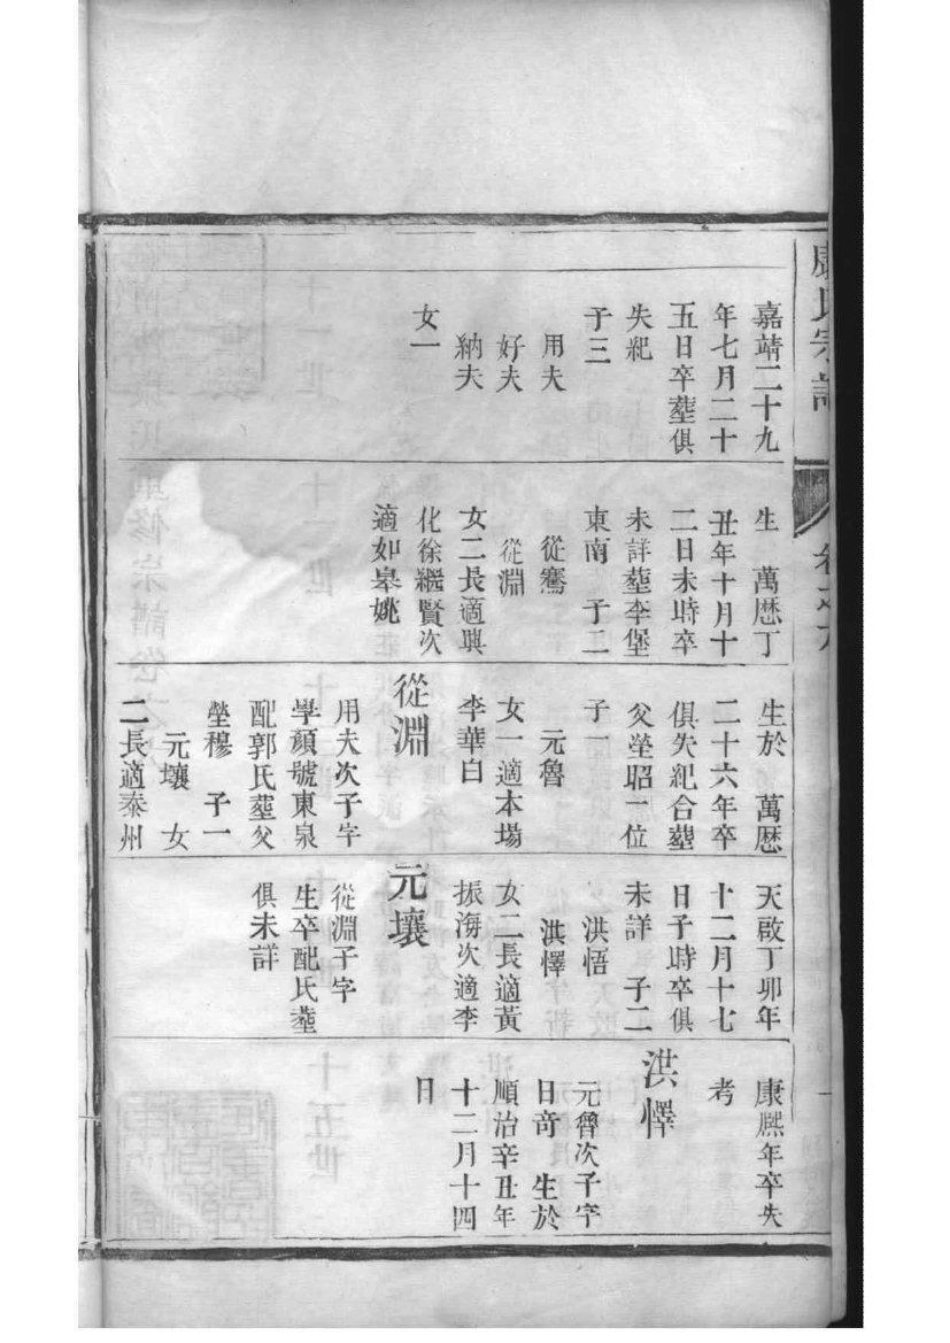 康氏宗譜
卷之六
一
嘉靖二十九
年七月二十
五日卒塟俱
失紀
子三
用夫
好夫
納夫
女一
生 萬厯丁
丑年十月十
二日未時卒
未詳塟李堡
東南 子二
從騫
從淵
女二長適興
化徐繼賢次
適如皋姚
生於 萬厯
二十六年卒
俱失紀合塟
父塋昭一位
子一
元魯
女一適本場
李華白
從淵
用夫次子字
學顏號東泉
配郭氏塟父
塋穆 子一
元壤 女
二長適泰州
天啟丁卯年
十二月十七
日子時卒俱
未詳 子二
洪悟
洪懌
女二長適黃
振海次適李
元壤
從淵子字
生卒配氏塟
俱未詳
康熈年卒失
考
洪懌
元魯次子字
日奇 生於
順治辛丑年
十二月十四
日